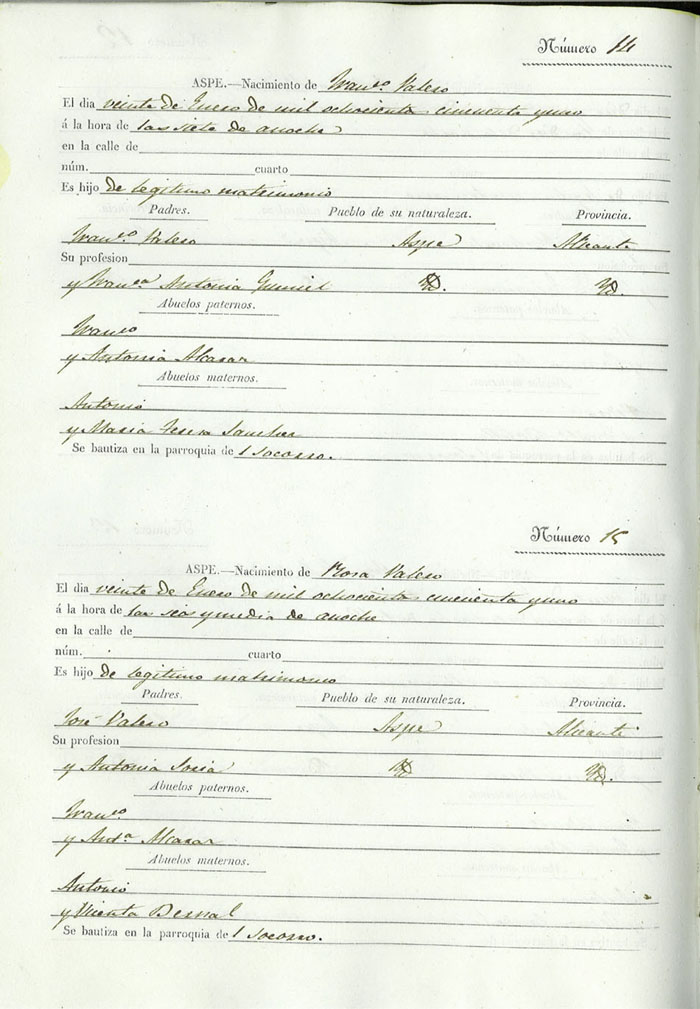 Número 14
ASPE.—Nacimiento de Franco. Valero
El dia veinte de Enero de mil ochocientos cincuenta y uno
á la hora de las siete de anoche
en la calle de
núm. cuarto
Es hijo de legitimo matrimonio
Padres. Pueblo de su naturaleza. Provincia.
Franco. Valero Aspe Alicante
Su profesion
y Franca. Antonia Gumiel Yd. Yd.
Abuelos paternos.
Franco
y Antonia Alcasar
Abuelos maternos.
Antonio
y Maria Teresa Sanchez
Se bautiza en la parroquia de l Socorro.
Número 15
ASPE.—Nacimiento de Rosa Valero
El dia veinte de Enero de mil ochocientos cincuenta y uno
á la hora de las seis y media de anoche
en la calle de
núm. cuarto
Es hijo de legitimo matrimonio
Padres. Pueblo de su naturaleza. Provincia.
José Valero Aspe Alicante
Su profesion
y Antonia Soria Yd Yd.
Abuelos paternos.
Franco
y Anta Alcasar
Abuelos maternos.
Antonio
y Vicenta Bernal
Se bautiza en la parroquia de l Socorro.